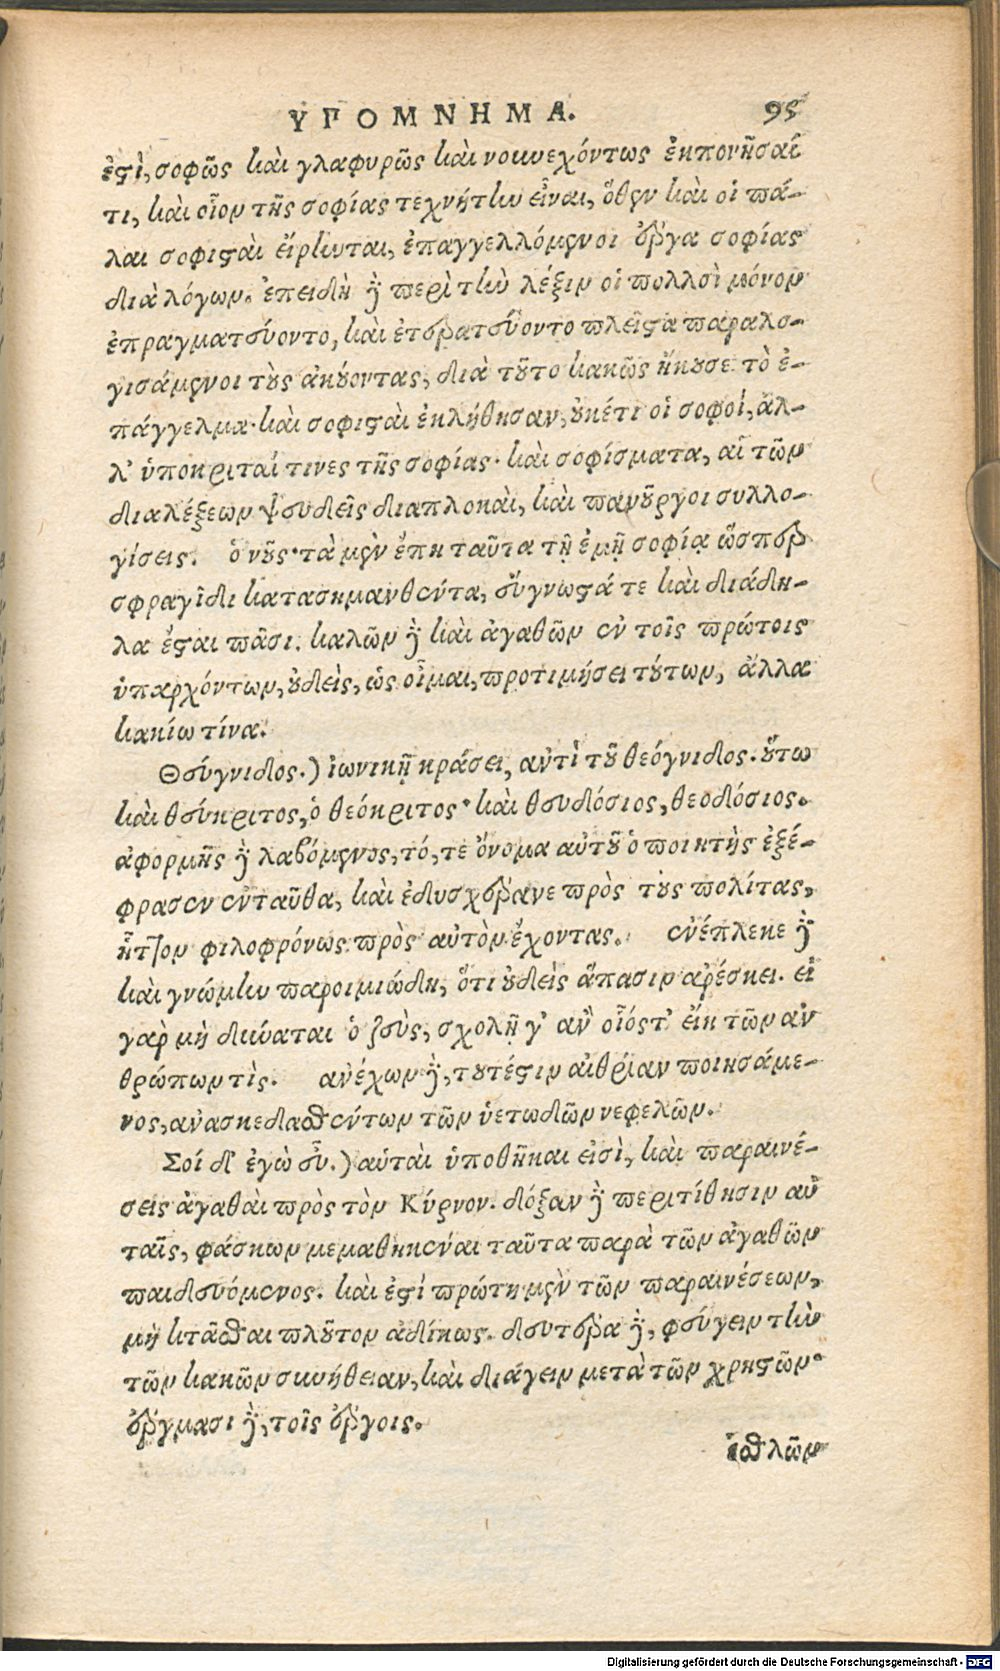 ΥΠΟΜΝΗΜΑ. 95
ἐστὶ, σοφῶς καὶ γλαφυρῶς καὶ νουνεχόντως ἐκπονῆσαί
τι, καὶ οἷον τῆς σοφίας τεχνήτην εἶναι, ὅθεν καὶ οἱ πά-
λαι σοφισταὶ εἴρηνται, ἐπαγγελλόμενοι ἔργα σοφίας
διὰ λόγων. ἐπειδὴ δὲ περὶ τὴν λέξιν οἱ πολλοὶ μόνον
ἐπραγματεύοντο, καὶ ἐτερατεύοντο πλεῖστα παραλο-
γισάμενοι τοὺς ἀκούοντας, διὰ τοῦτο κακῶς ἤκουσε τὸ ἐ-
πάγγελμα· καὶ σοφισταὶ ἐκλήθησαν, οὐκέτι οἱ σοφοί, ἀλ-
λ' ὑποκριταί τινες τῆς σοφίας· καὶ σοφίσματα, αἱ τῶν
διαλέξεων ψευδεῖς διαπλοκαὶ, καὶ πανοῦργοι συλλο-
γίσεις. ὁ νοῦς· τὰ μὲν ἔπη ταῦτα τῇ ἐμῇ σοφίᾳ ὥσπερ
σφραγῖδι κατασημανθέντα, εὔγνωστά τε καὶ διάδη-
λα ἔσται πᾶσι. καλῶν δὲ καὶ ἀγαθῶν ἐν τοῖς πρώτοις
ὑπαρχόντων, οὐδεὶς, ὡς οἶμαι, προτιμήσει τούτων, ἄλλα
κακίω τίνα.
Θεύγνιδος.) ἰωνικῇ κράσει, ἀντὶ τοῦ θεόγνιδος. οὕτω
καὶ θεύκριτος, ὁ θεόκριτος· καὶ θευδόσιος, θεοδόσιος.
ἀφορμῆς δὲ λαβόμενος, τό, τε ὄνομα αὑτοῦ ὁ ποιητὴς ἐξέ-
φρασεν ἐνταῦθα, καὶ ἐδυσχέρανε πρὸς τοὺς πολίτας,
ἧττον φιλοφρόνως πρὸς αὐτὸν ἔχοντας. ἐνέπλεκε δὲ
καὶ γνώμην παροιμιώδη, ὅτι οὐδεὶς ἅπασιν ἀρέσκει. εἰ
γὰρ μὴ δύναται ὁ ζεὺς, σχολῇ γ' ἂν οἷόστ' εἴη τῶν ἀν
θρώπων τὶς. ἀνέχων δὲ, τουτέστιν αἰθρίαν ποιησάμε-
νος, ἀνασκεδασθέντων τῶν ὑετωδῶν νεφελῶν.
Σοί δ' ἐγὼ εὖ.) αὑταὶ ὑποθῆκαι εἰσὶ, καὶ παραινέ-
σεις ἀγαθαὶ πρὸς τὸν Κύρνον. δόξαν δὲ περιτίθησιν αὐ
ταῖς, φάσκων μεμαθηκέναι ταῦτα παρὰ τῶν ἀγαθῶν
παιδευόμενος. καὶ ἐστί πρώτη μὲν τῶν παραινέσεων,
μὴ κτᾶσθαι πλοῦτον ἀδίκως. δευτέρα δὲ, φεύγειν τὴν
τῶν κακῶν συνήθειαν, καὶ διάγειν μετὰ τῶν χρηστῶν·
ἔργμασι δὲ, τοῖς ἔργοις.
ἐσθλῶν